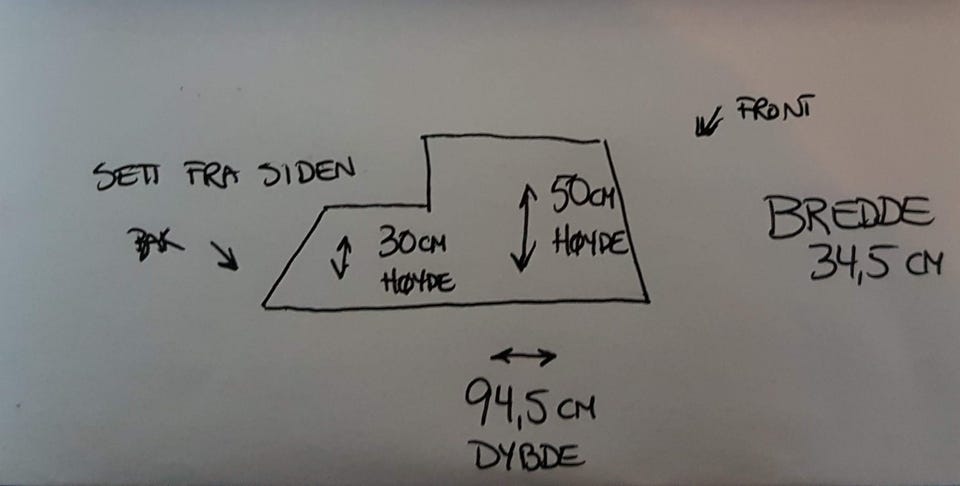 FRONT
SETT FRA SIDEN
BAK
50CM
HØYDE
30CM
HØYDE
BREDDE
34,5 CM
94,5 CM
DYBDE